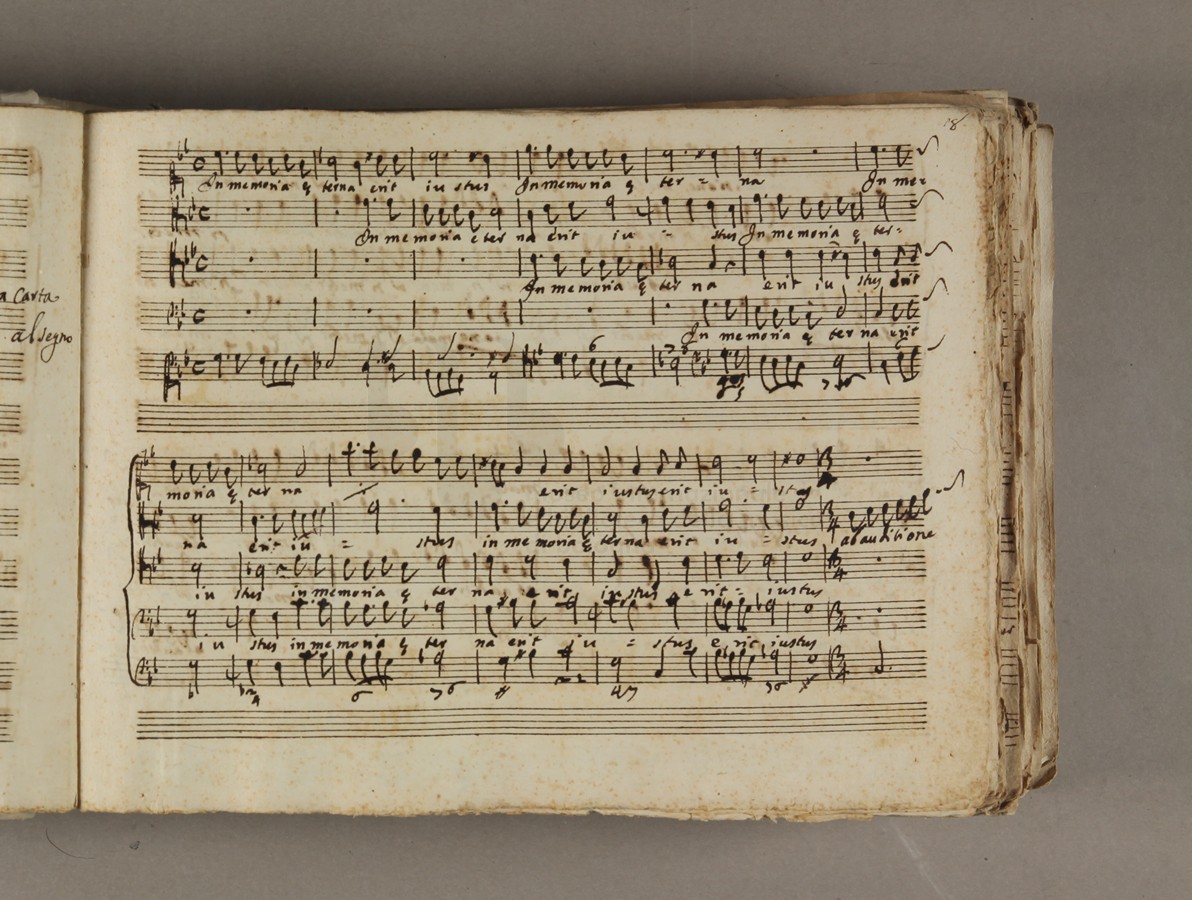 18
a Carta
al segno
In memoria ę terna erit iu stus In memoria ę ter = na In me=
In memoria e ter na erit iu = stus In memoria ę ter=
In memoria ę ter na erit iu stus erit
In memoria ę ter na erit
moria ę ter na erit iustus erit iu = stus
na erit iu = stus in memoria ę terna erit iu = stus ab auditione
iu stus in memoria ę ter na erit iustus erit = iustus
iu stus in memoria ę ter na erit iu = stus erit iustus